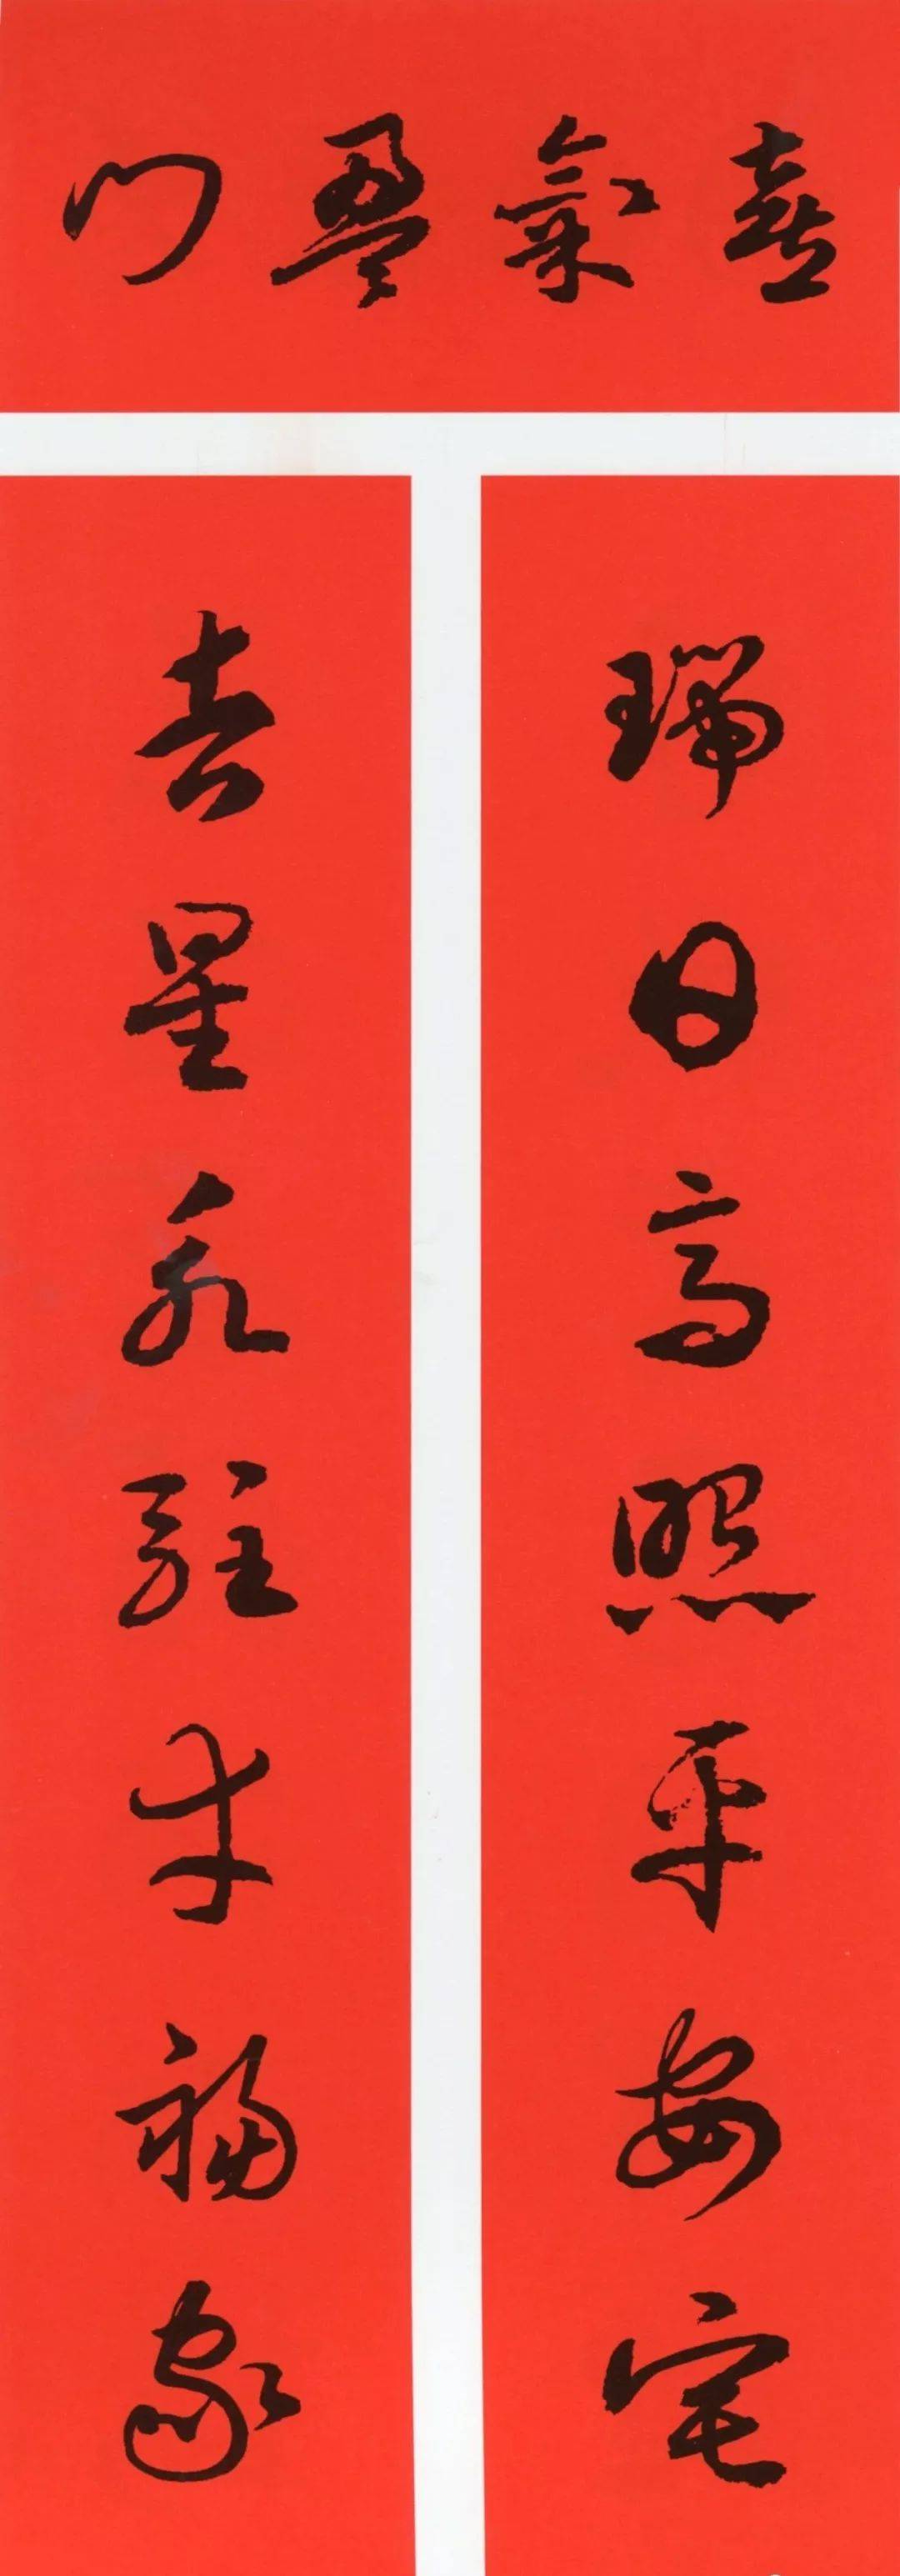 喜氣盈門
瑞日高照平安宅
吉星永駐幸福家